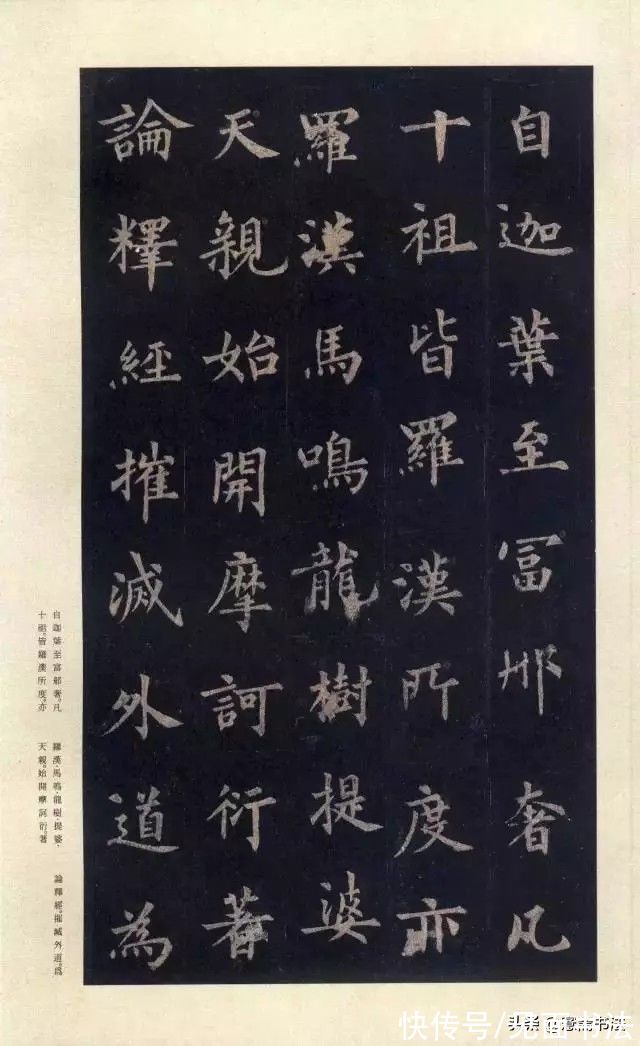 自迦葉至冨那奢凡
十祖皆羅漢所度亦
羅漢馬鳴龍樹提婆
天親始開摩訶衍著
論釋經摧滅外道為
自迦葉至富那奢。凡
十祖。皆羅漢所度。亦
羅漢。馬鳴・龍樹・提婆・
天親。始開摩訶衍。著
論釋經。摧滅外道。爲
快传号/见面书法
头条